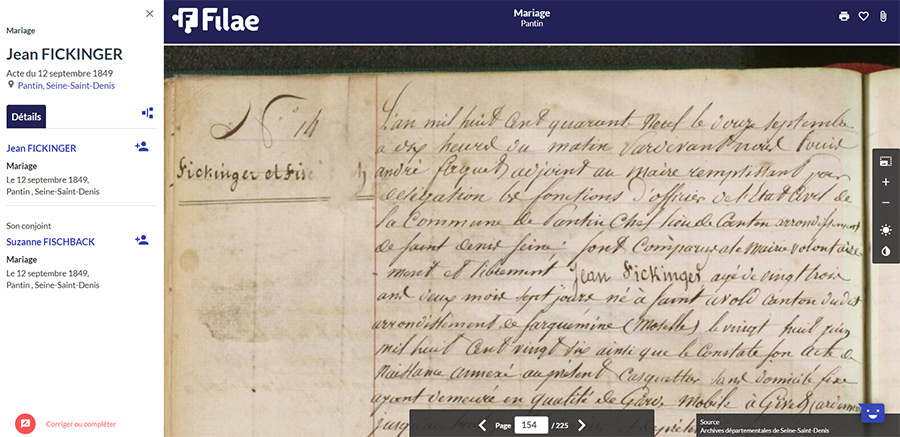 Mariage
Jean FICKINGER
Acte du 12 septembre 1849
Pantin, Seine-Saint-Denis
Détails
Jean FICKINGER
Mariage
Le 12 septembre 1849,
Pantin , Seine-Saint-Denis
Son conjoint
Suzanne FISCHBACK
Mariage
Le 12 septembre 1849,
Pantin , Seine-Saint-Denis
Corriger ou compléter
Filae
Mariage
Pantin
N° 14
Fickinger et Fis
L'an mil huit Cent quarante Neuf le douze Septembre
a dix heures du matin Pardevant nous Louis
andré adjoint au Maire remplissant par
délégation les fonctions d'officier de l'Etat Civil de
la Commune de Pantin Chef lieu de Canton arrondissement
de Saint denis Seine; Sont Comparus
ment et librement Jean Fickinger agé de vingt trois
ans deux mois Sept jours né à Saint avold Canton dudit
arrondissement de Sarguemine (Moselle) le vingt huit juin
mil huit Cent vingt Six ainsi que le Constate Son acte de
Naissance annexé au présent Casquettier Sans domicile fixe
ayant demeuré en qualité de Garde Mobile à Givet (ardennes
jusqu'au
Page 154 / 225
Source
Archives départementales de Seine-Saint-Denis